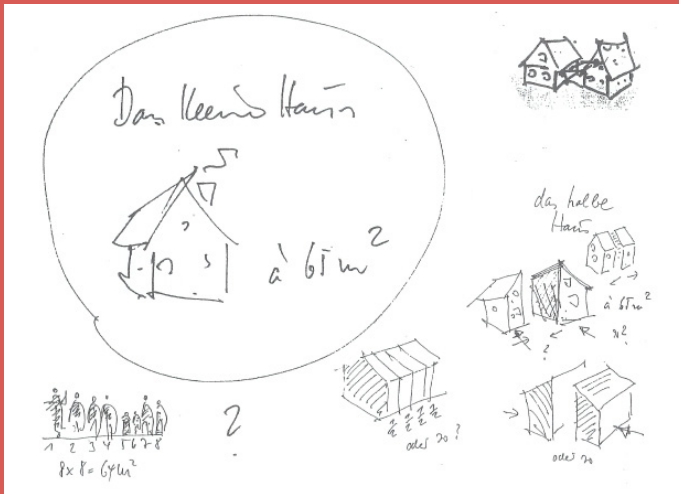 Das kleine Haus
à 65 m²
das halbe
Haus
à 65 m²
?
?
1 2 3 4 5 6 7 8
8 x 8 = 64 m²
?
½ ½ ½ ½
oder so ?
oder so